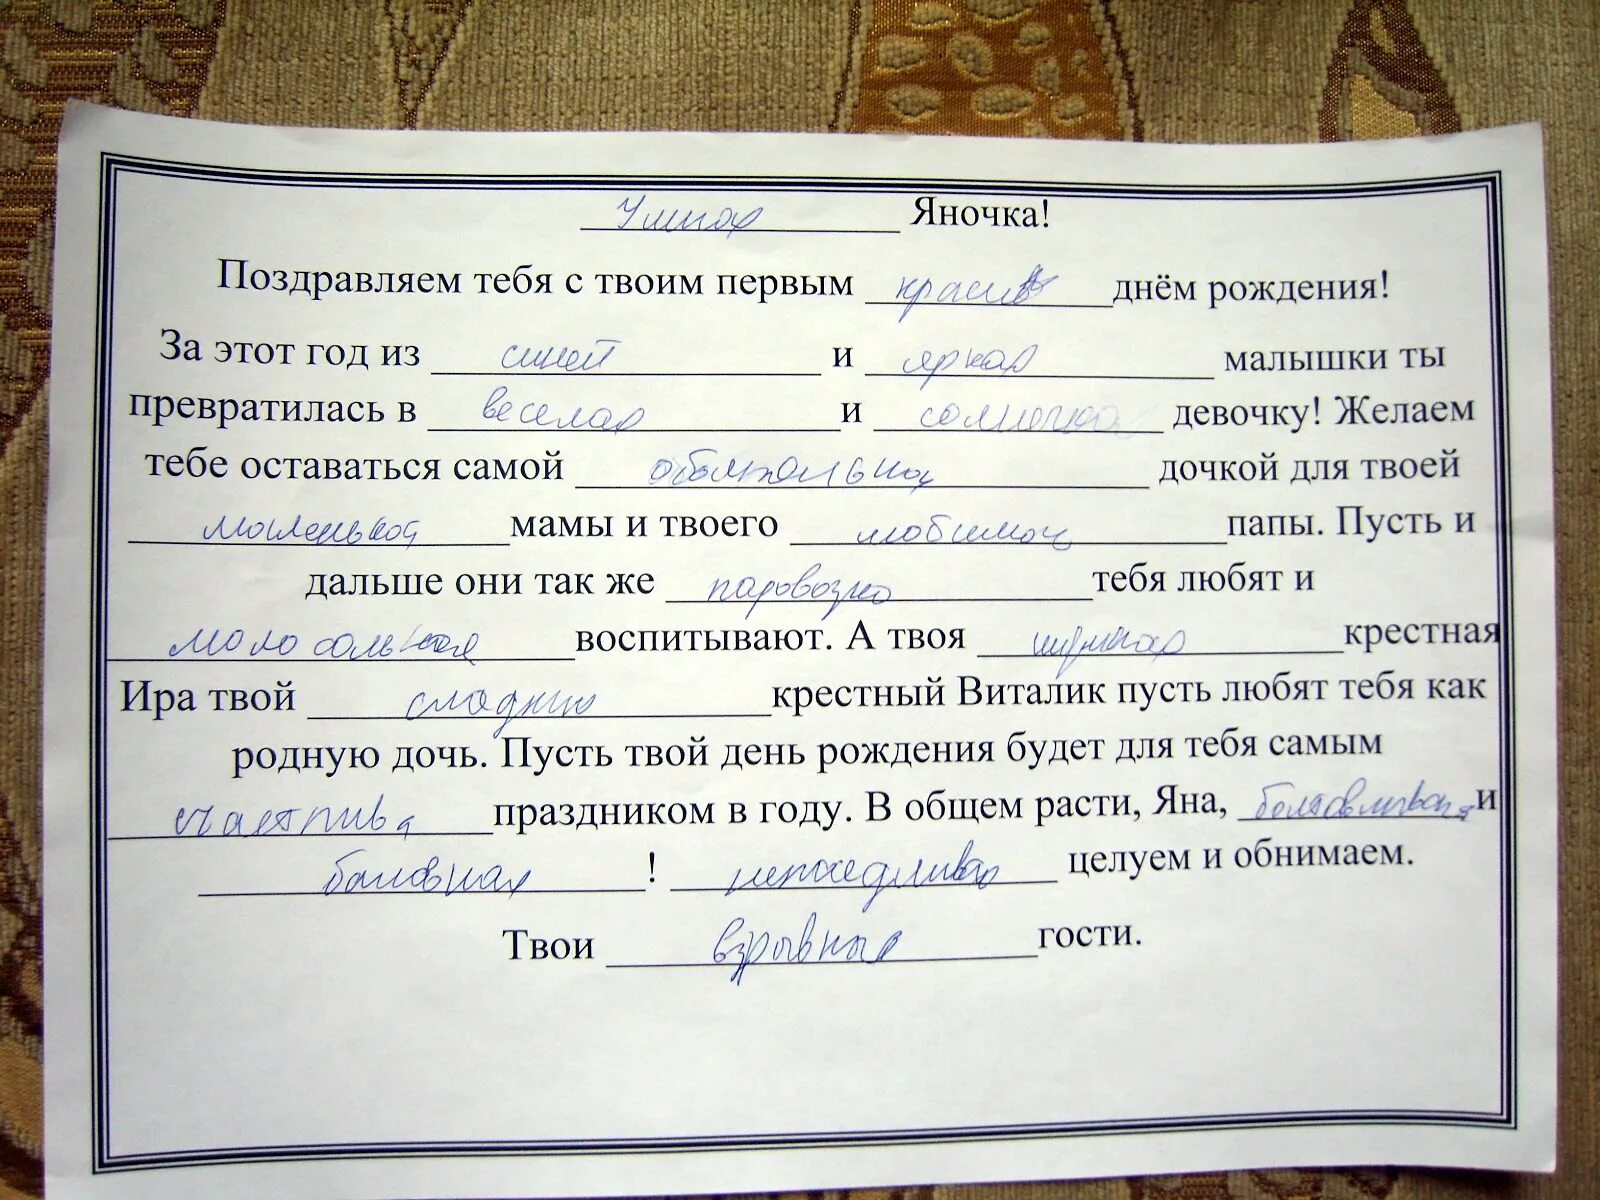 Умная Яночка!
Поздравляем тебя с твоим первым красив днём рождения!
За этот год из синей и яркая малышки ты
превратилась в веселая и солнечная девочку! Желаем
тебе оставаться самой обаятельная дочкой для твоей
маленькой мамы и твоего любимой папы. Пусть и
дальше они так же паровозно тебя любят и
малосольная воспитывают. А твоя шумная крестная
Ира твой крестный Виталик пусть любят тебя как
родную дочь. Пусть твой день рождения будет для тебя самым
счастлива праздником в году. В общем расти, Яна, болтливая и
баловная ! непоседливая целуем и обнимаем.
Твои взрывные гости.